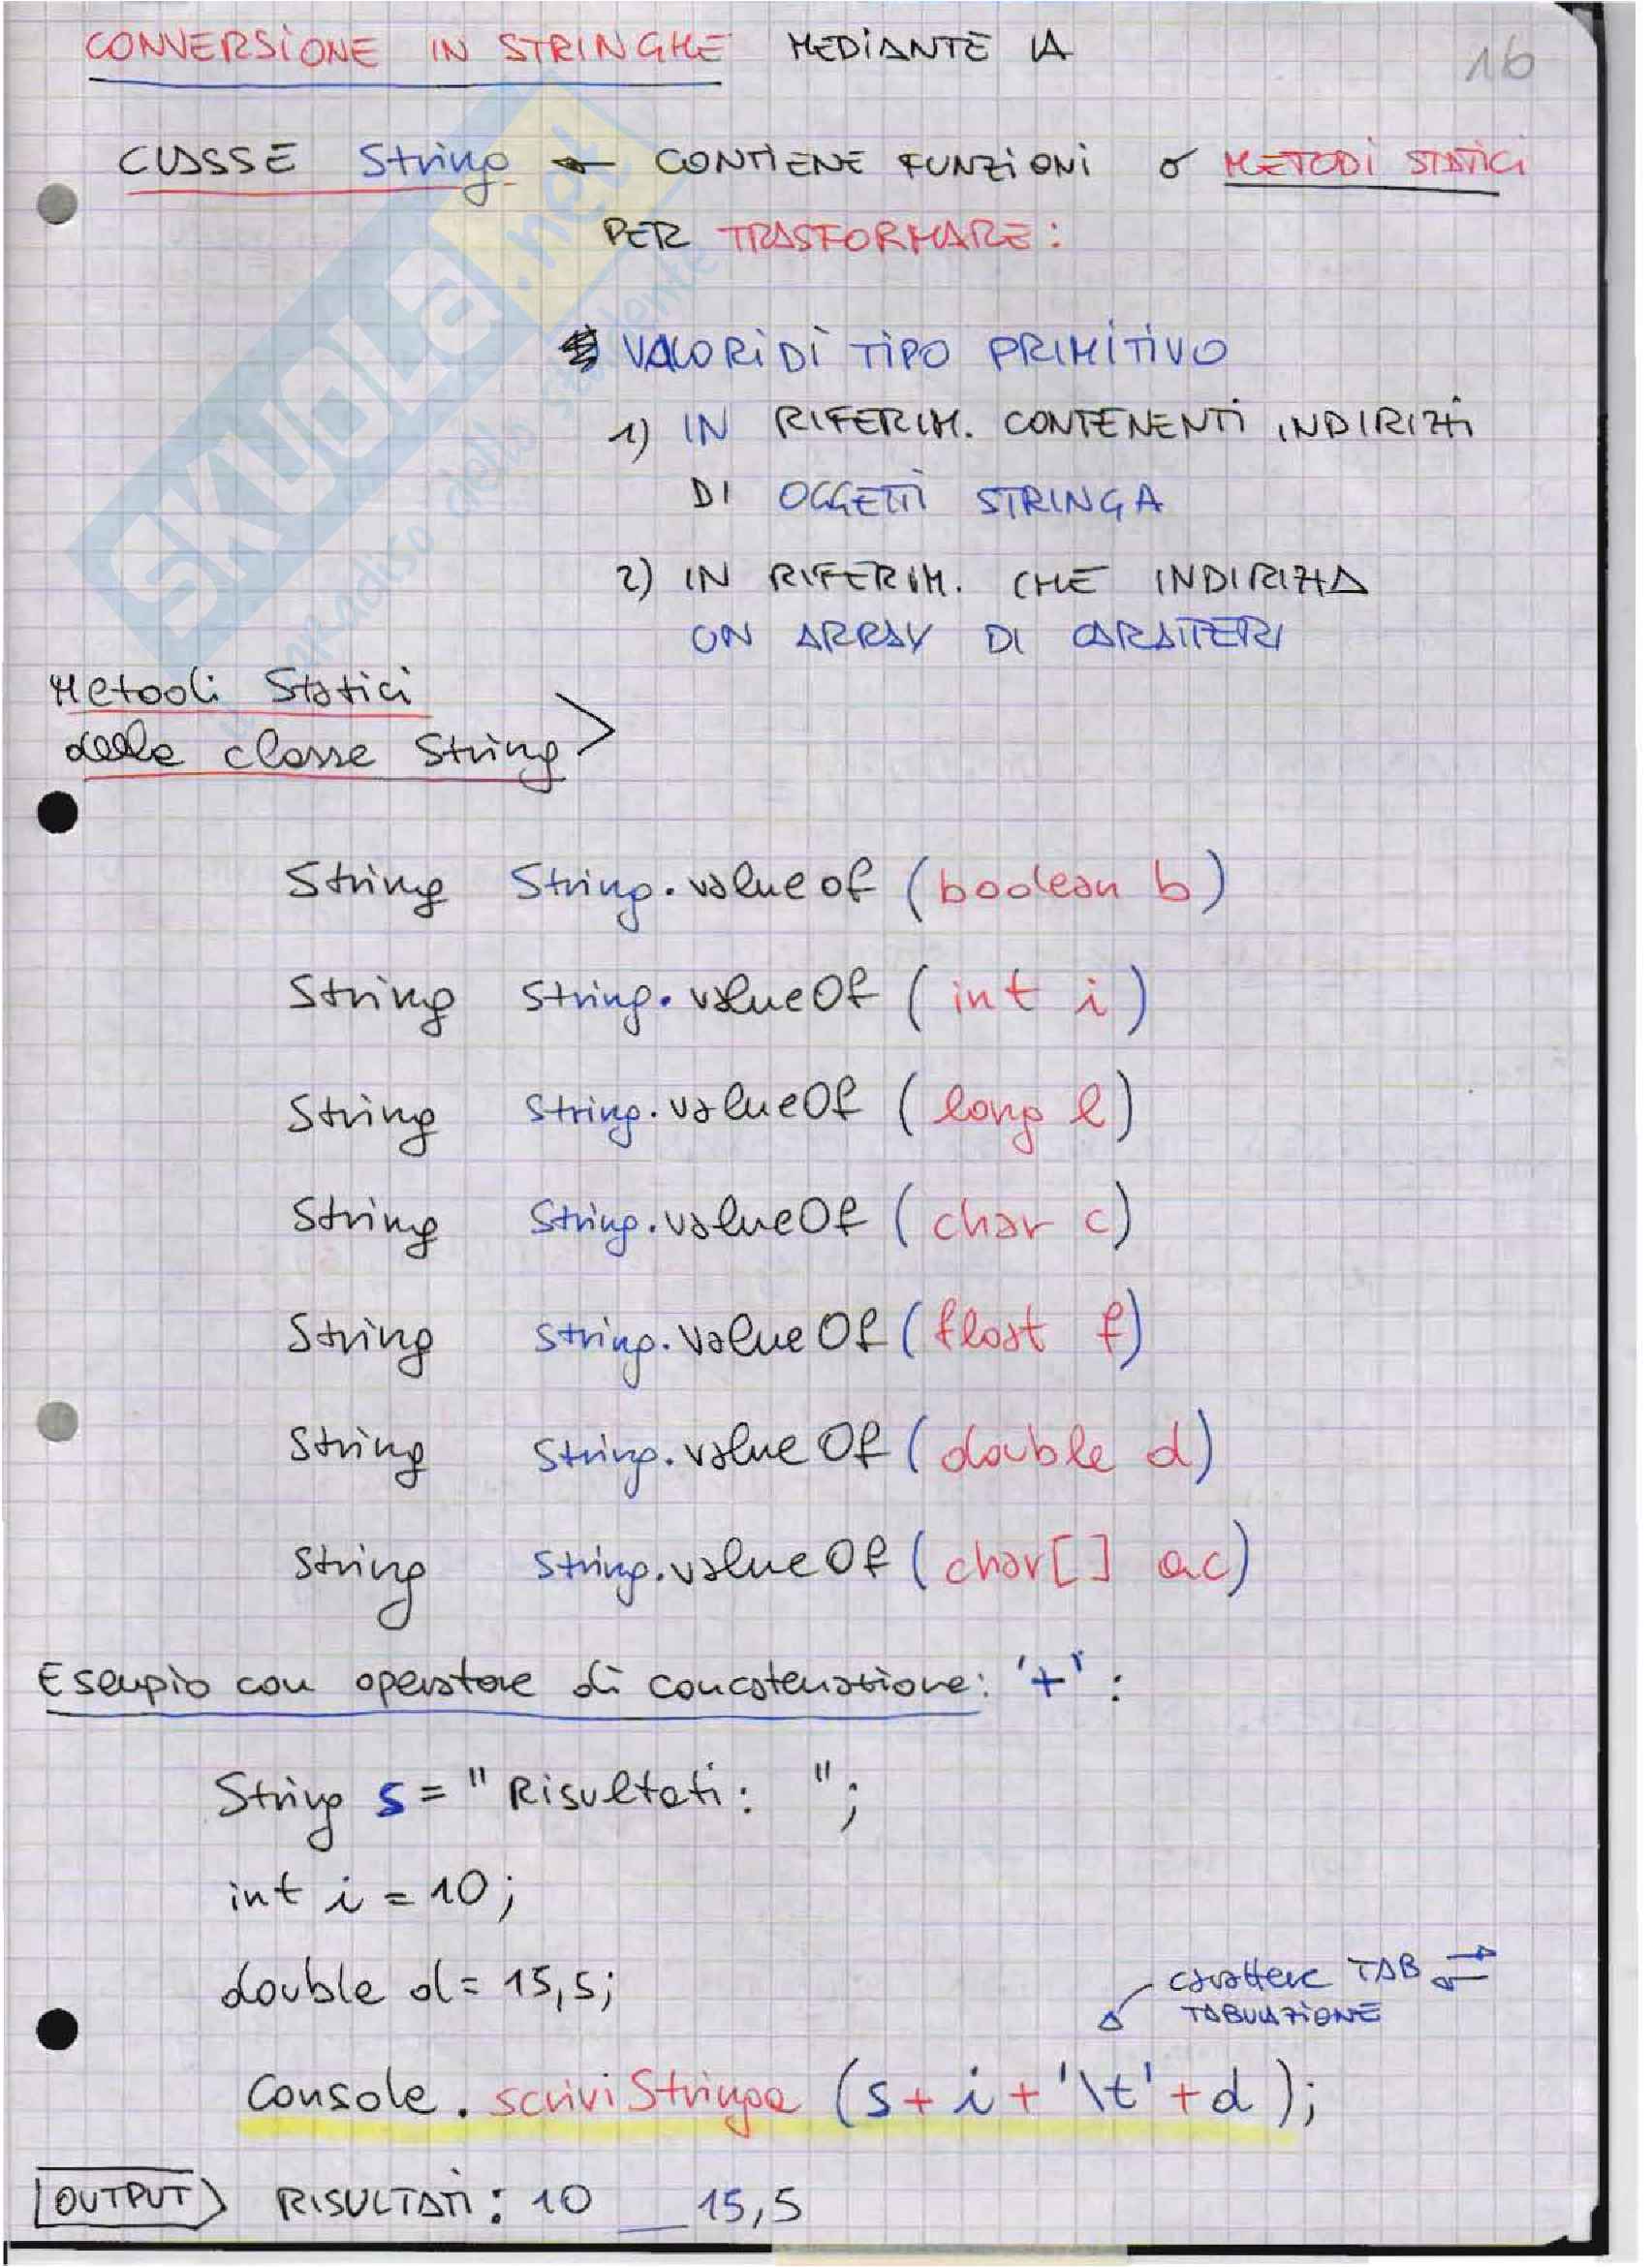 CONVERSIONE IN STRINGHE MEDIANTE LA
16
CLASSE String ← CONTIENE FUNZIONI o METODI STATICI
PER TRASFORMARE:
VALORI DI TIPO PRIMITIVO
1) IN RIFERIM. CONTENENTI INDIRIZZI
DI OGGETTI STRINGA
2) IN RIFERIM. CHE INDIRIZZA
UN ARRAY DI CARATTERI
Metodi Statici
della classe String >
String String.valueof (boolean b)
String String.valueOf (int i)
String String.valueOf (long l)
String String.valueOf (char c)
String String.valueOf (float f)
String String.valueOf (double d)
String String.valueOf (char[] ac)
Esempio con operatore di concatenazione: '+' :
String s = "Risultati: ";
int i = 10;
double d = 15,5;
carattere TAB
TABULAZIONE
Console.scriviStringa (s+i+'\t'+d);
OUTPUT RISULTATI: 10 __ 15,5
SKUOLA.net
il paradiso dello studente